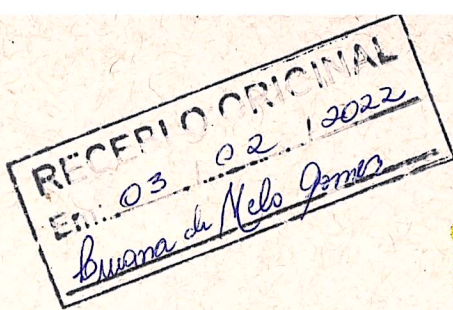 RECEBI O ORIGINAL
Em: 03 / 02 / 2022
de Melo Gomes